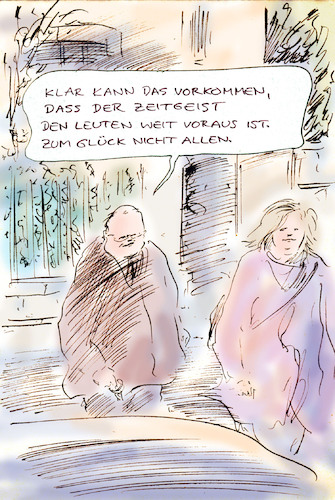 KLAR KANN DAS VORKOMMEN,
DASS DER ZEITGEIST
DEN LEUTEN WEIT VORAUS IST.
ZUM GLÜCK NICHT ALLEN.